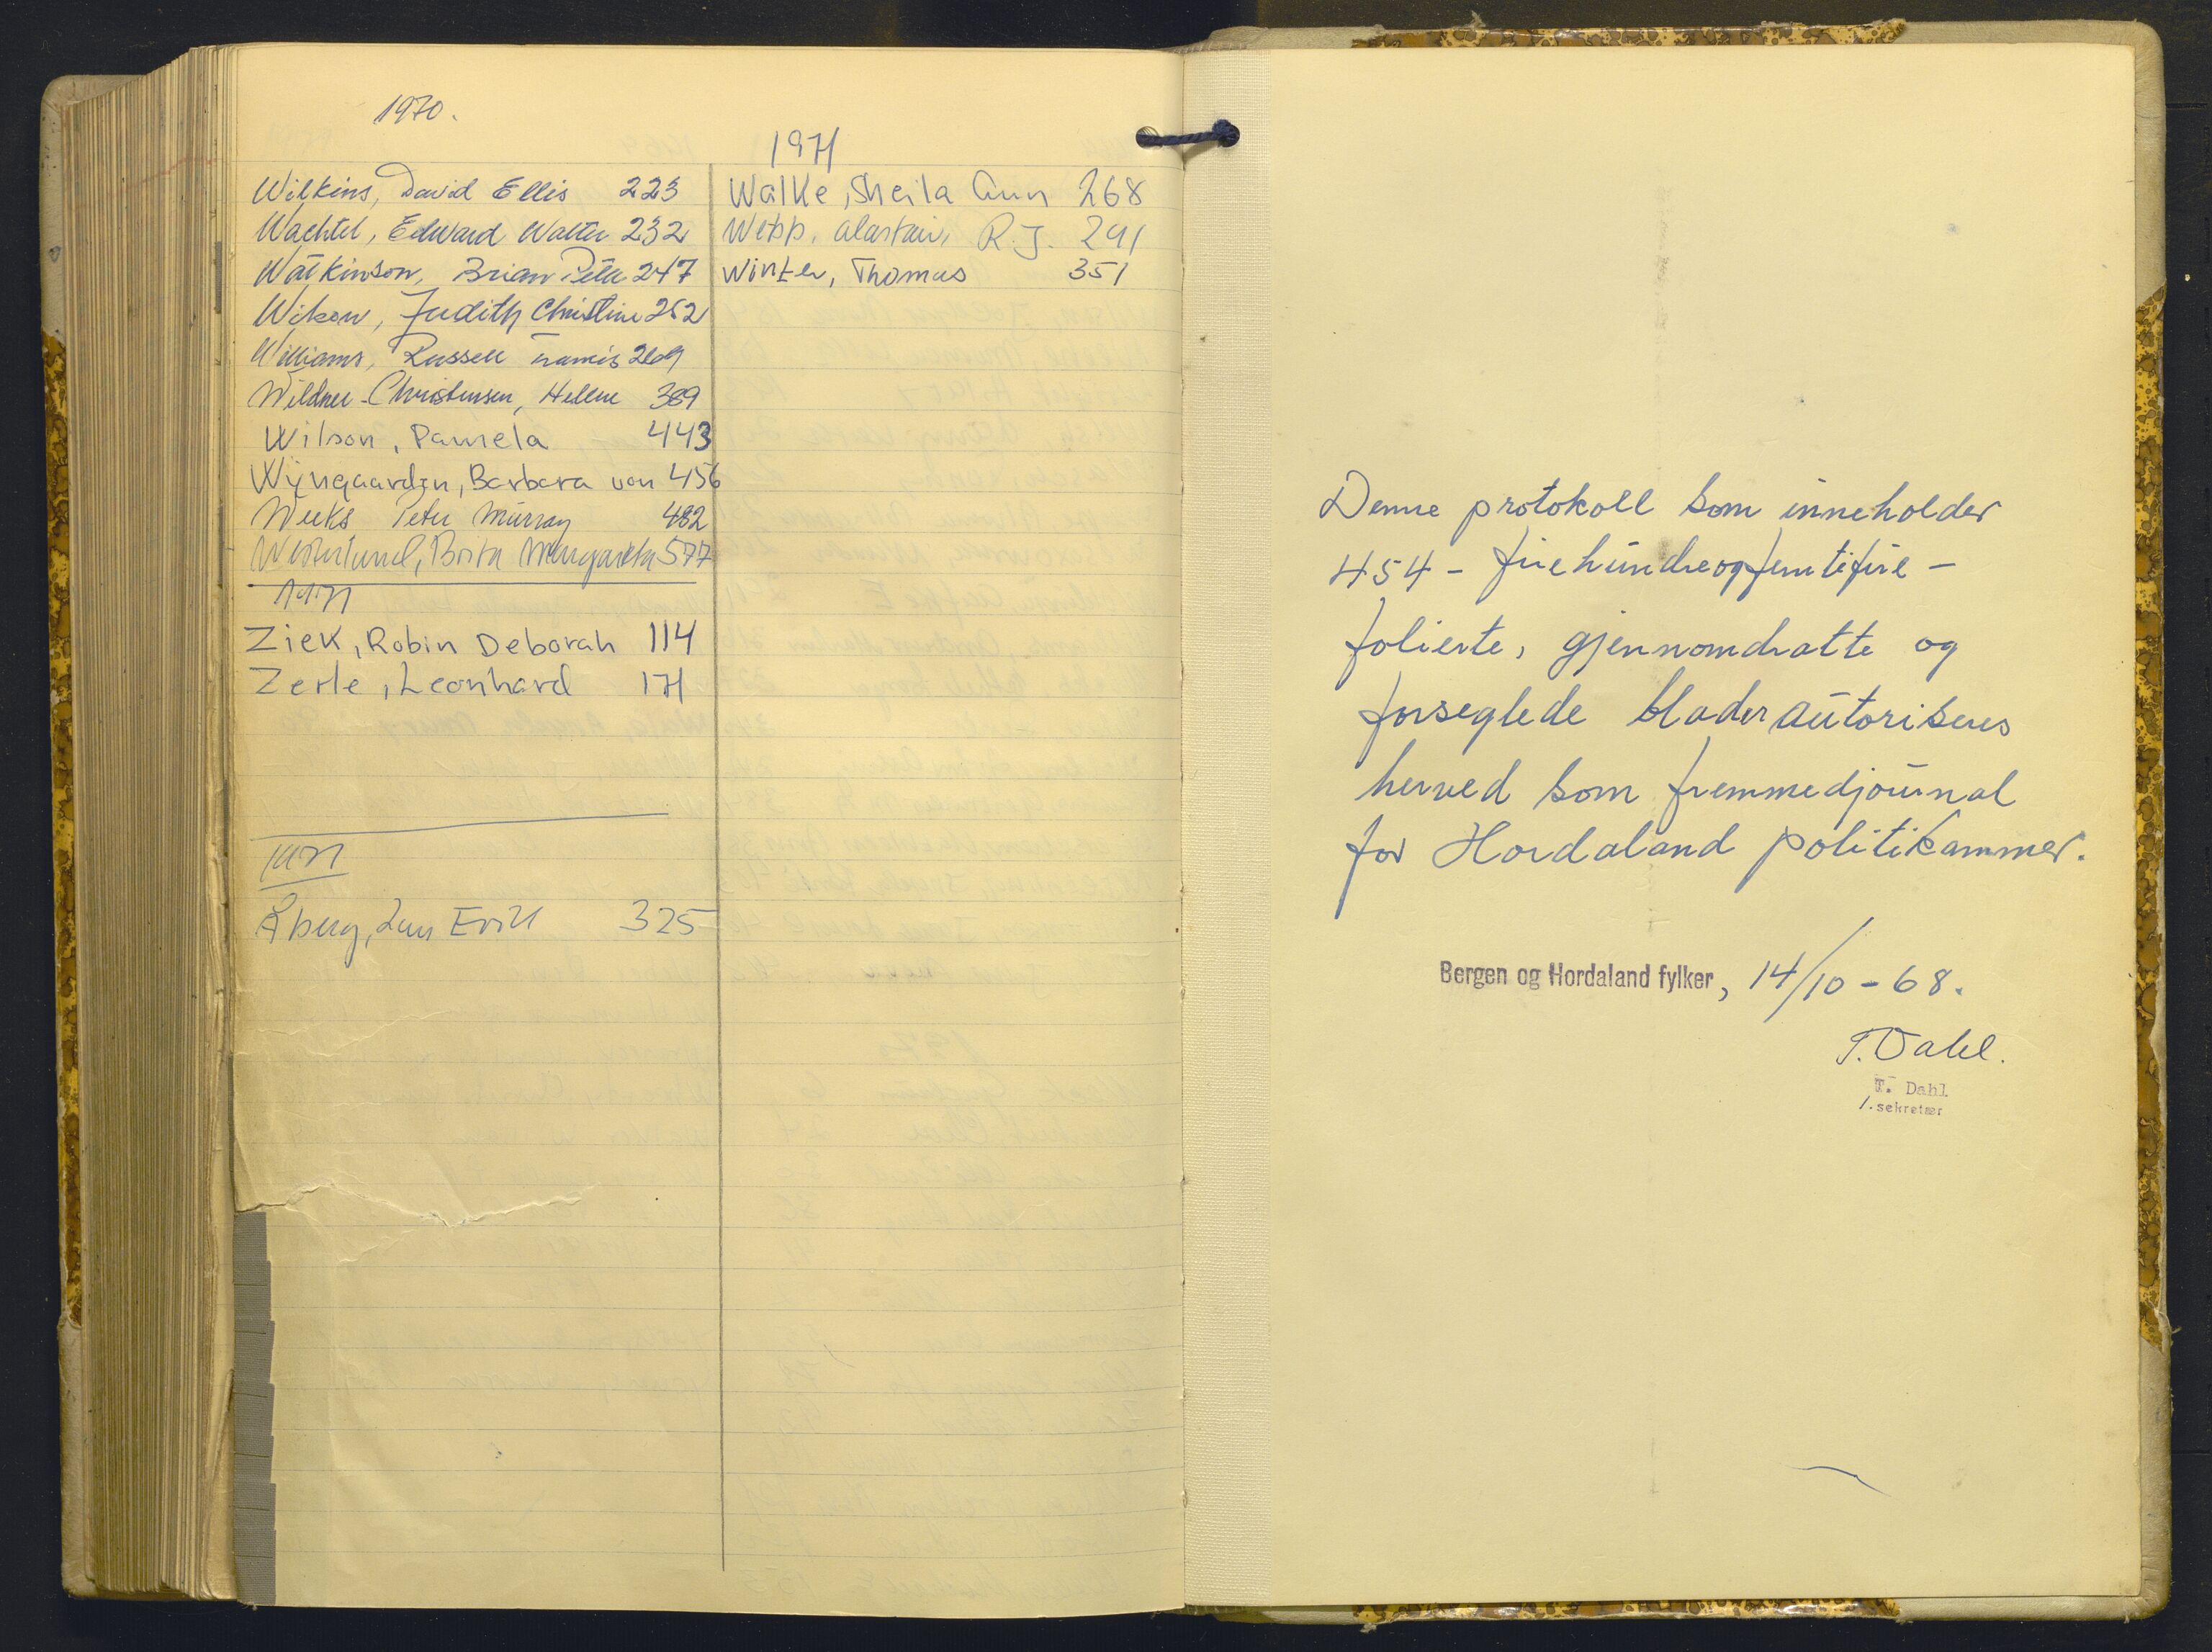 1970.
Wilkins, David Ellis 223
Wachtel, Edward Walter 232
Watkinson, Brian Peter 247
Judith Christine 252
Williams, Russell 269
Wildner-Christensen, Hellene 389
Wilson, Pamela 443
Wijngaarden, Barbara von 456
Weeks Peter Murray 482
Westerlund, Brita Margareta 577
1971
Ziek, Robin Deborah 114
Zerle, Leonhard 171
1971
Åberg, Jan Erik 325
1971
Walke, Sheila Ann 268
Webb, Alastair, R.J. 291
Winter, Thomas 351
Denne protokoll som inneholder
454 - firehundreogfemtifire -
folierte, gjennomdratte og
forseglede blader autoriseres
herved som fremmedjournal
for Hordaland politikammer.
Bergen og Hordaland fylker, 14/10-68.
T. Dahl.
T. Dahl
1. sekretær